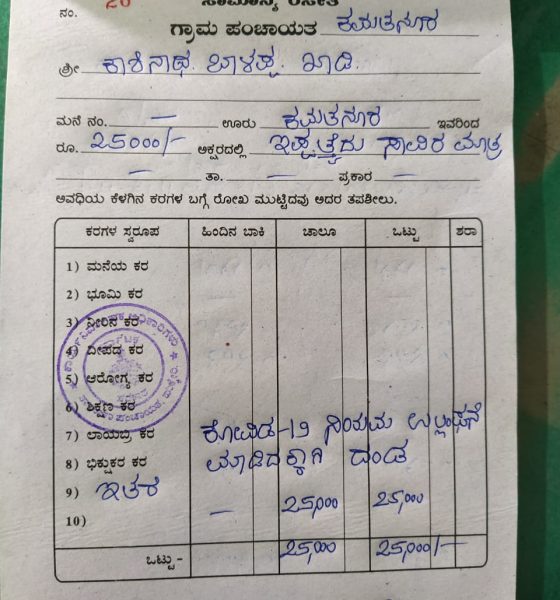 ಸಾಮಾನ್ಯ ರಸೀತಿ
ನಂ. 20
ಗ್ರಾಮ ಪಂಚಾಯತ ಕಮತನೂರ
ಶ್ರೀ ಕಾಶಿನಾಥ. ಬಾಳಪ್ಪ. ಖಾಡಿ.
ಮನೆ ನಂ. — ಊರು ಕಮತನೂರ ಇವರಿಂದ
ರೂ. 25000/- ಅಕ್ಷರದಲ್ಲಿ ಇಪ್ಪತ್ತೈದು ಸಾವಿರ ಮಾತ್ರ
— ತಾ. — ಪ್ರಕಾರ —
ಅವಧಿಯ ಕೆಳಗಿನ ಕರಗಳ ಬಗ್ಗೆ ರೋಖ ಮುಟ್ಟಿದವು ಅದರ ತಪಶೀಲು.
ಕರಗಳ ಸ್ವರೂಪ ಹಿಂದಿನ ಬಾಕಿ ಚಾಲೂ ಒಟ್ಟು ಶರಾ
1) ಮನೆಯ ಕರ
2) ಭೂಮಿ ಕರ
3) ನೀರಿನ ಕರ
4) ದೀಪದ ಕರ
5) ಆರೋಗ್ಯ ಕರ
6) ಶಿಕ್ಷಣ ಕರ
7) ಲಾಯಬ್ರಿ ಕರ ಕೋವಿಡ-19 ನಿಯಮ ಉಲ್ಲಂಘನೆ
8) ಭಿಕ್ಷುಕರ ಕರ ಮಾಡಿದಕ್ಕಾಗಿ ದಂಡ
9) ಇತರ — 25,000 25,000
10)
ಒಟ್ಟು - 25,000 25,000/-